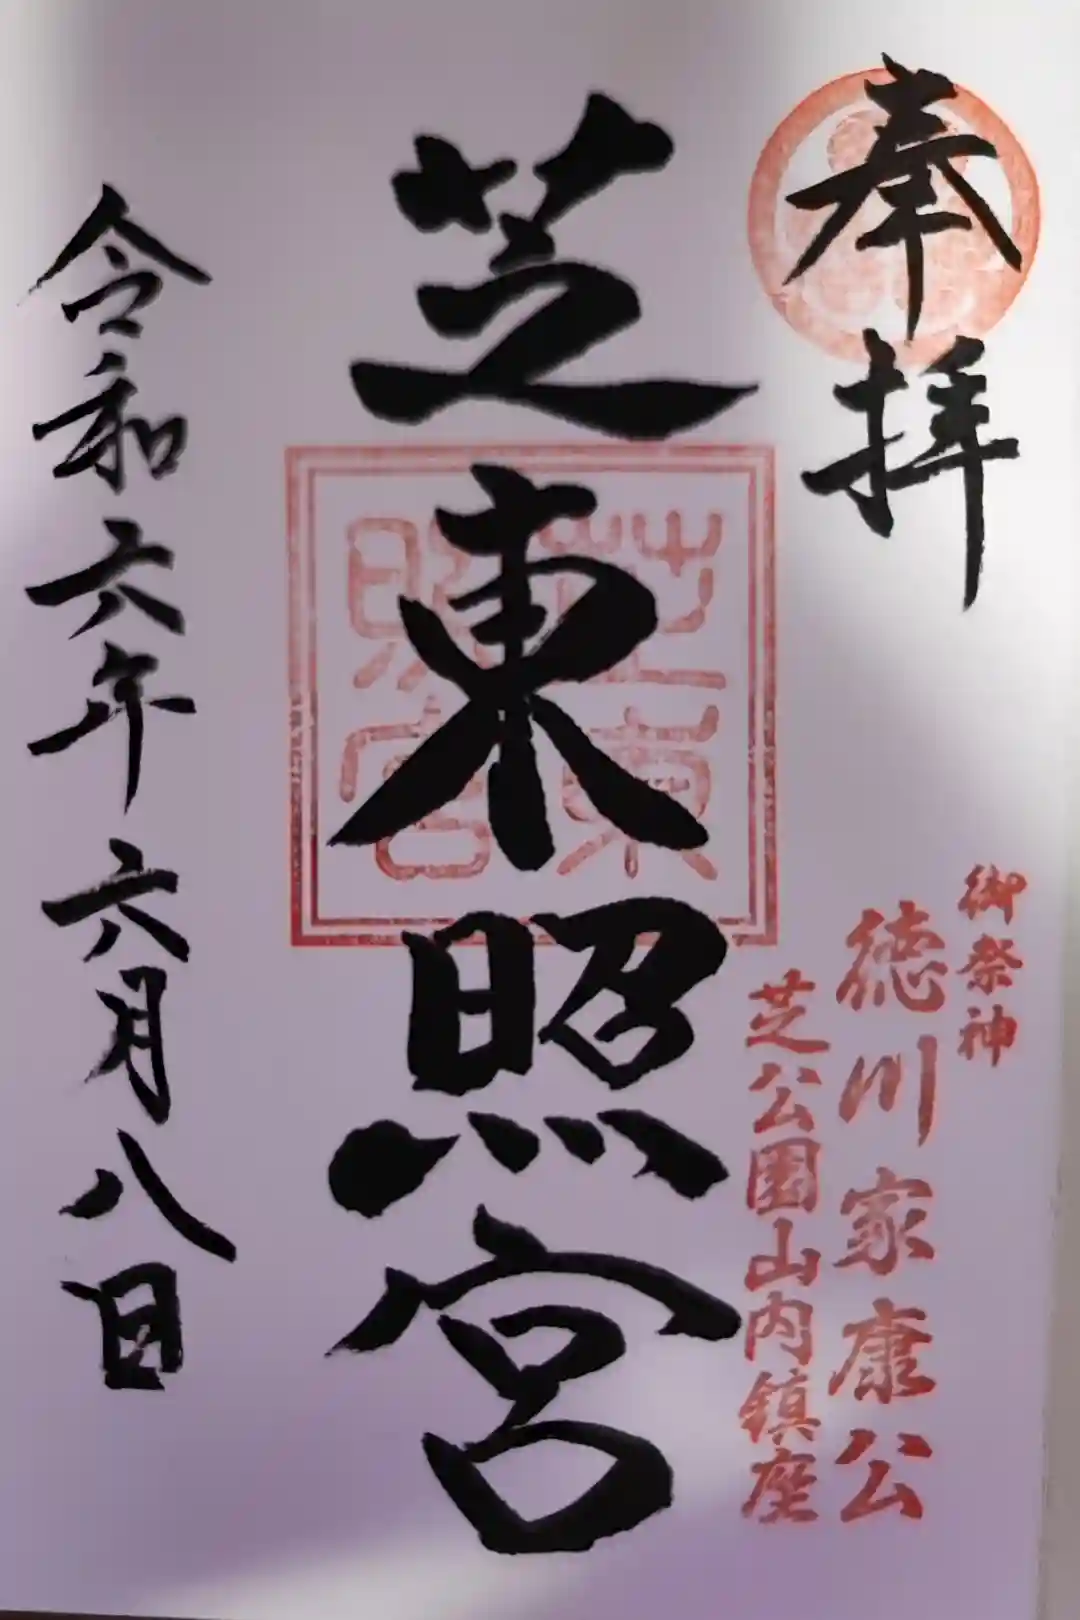 奉拝
御祭神
徳川家康公
芝公園山内鎮座
芝東照宮
芝東
照宮
令和六年六月八日